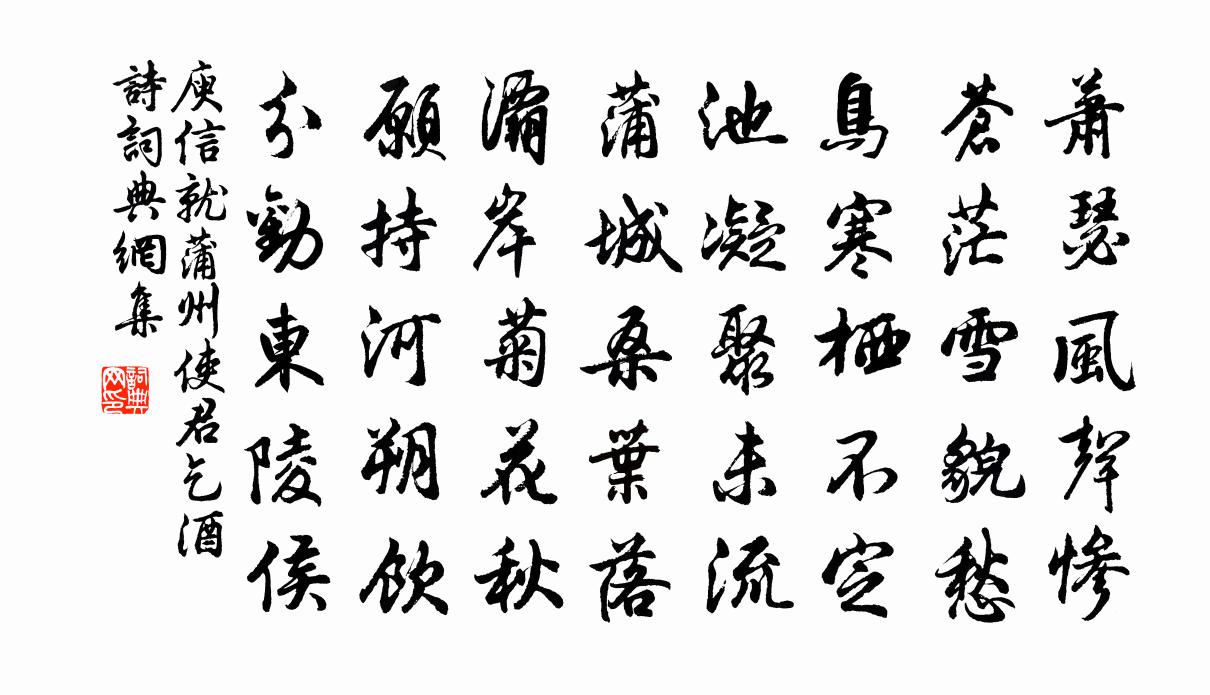 蕭瑟風聲慘
蒼茫雪貌愁
鳥寒栖不定
池凝聚未流
蒲城桑葉落
灞岸菊花秋
願持河朔飲
分勸東陵侯
庾信就蒲州使君乞酒
詩詞典網集
詞典
网印